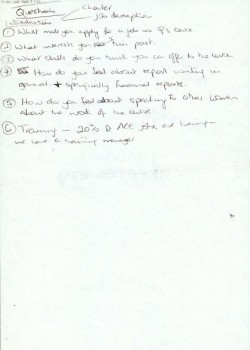 Questions
Charter
Introductions
job description
① What made you apply for a job in 's centre
② What interests you about this post.
③ What skills do you think you can offer to the centre
④ How do you feel about report writing in
general + specifically financial reports.
⑤ How do you feel about speaking to other women
about the work of the centre
⑥ Training — 20% of job are training —
we have a training manager